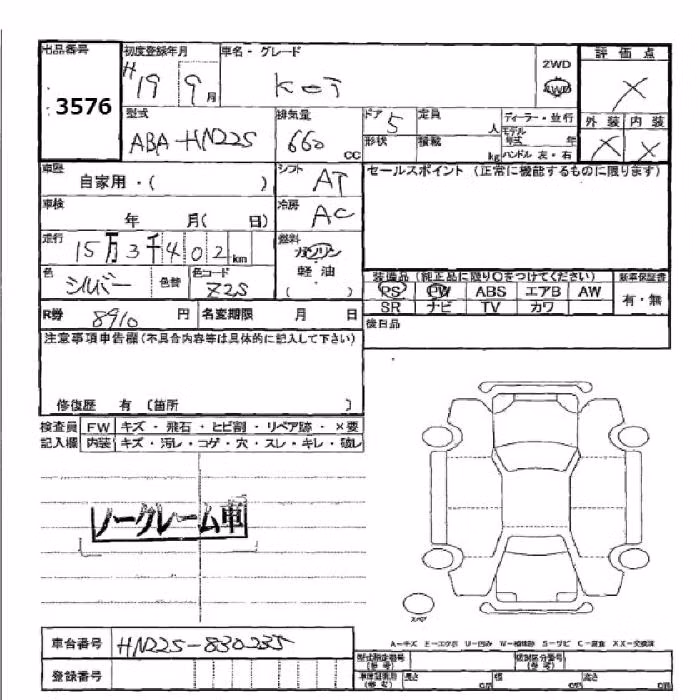 出品番号 初度登録年月 車名・グレード 評価点
3576 H19 9月 Kei 2WD 4WD X
型式 排気量 ドア 5 定員 人 ディーラー・並行 外装 内装
ABA-HN22S 660cc 形状 積載 kg モデル年式 年 ハンドル 左・右 X X
車歴 自家用・( ) シフト AT セールスポイント (正常に機能するものに限ります)
車検 年 月( 日) 冷房 AC
走行 15万3千402km 燃料 ガソリン
色 シルバー 色替 色コード Z2S 軽油
( )
装備品 (純正品に限り○をつけてください) 新車保証書
PS PW ABS エアB AW 有・無
SR ナビ TV カワ
R券 8910 円 名変期限 月 日 後日品
注意事項申告欄(不具合内容等は具体的に記入して下さい)
修復歴 有 〔箇所 〕
検査員 FW キズ・飛石・ヒビ割・リペア跡・×要
記入欄 内装 キズ・汚レ・コゲ・穴・スレ・キレ・破レ
ノークレーム車
スペア
A=キズ E=エクボ U=凹み W=補修跡 S=サビ C=腐食 XX=交換済
車台番号 HN22S-830235
型式指定番号 (参考) 類別区分番号 (参考)
登録番号
車両寸法 (参考) 長さ cm 幅 cm 高さ cm